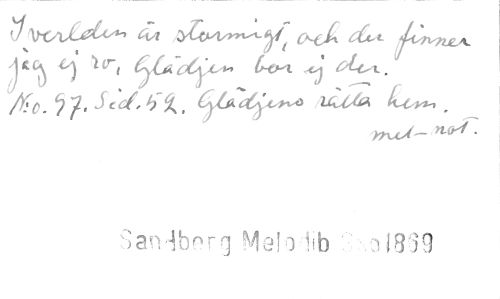 I verlden är stormigt, och der finner
jag ej ro, Glädjen bor ej der.
No. 97. Sid. 52. Glädjens rätta hem.
mel-not.
Sandberg Melodib 1869